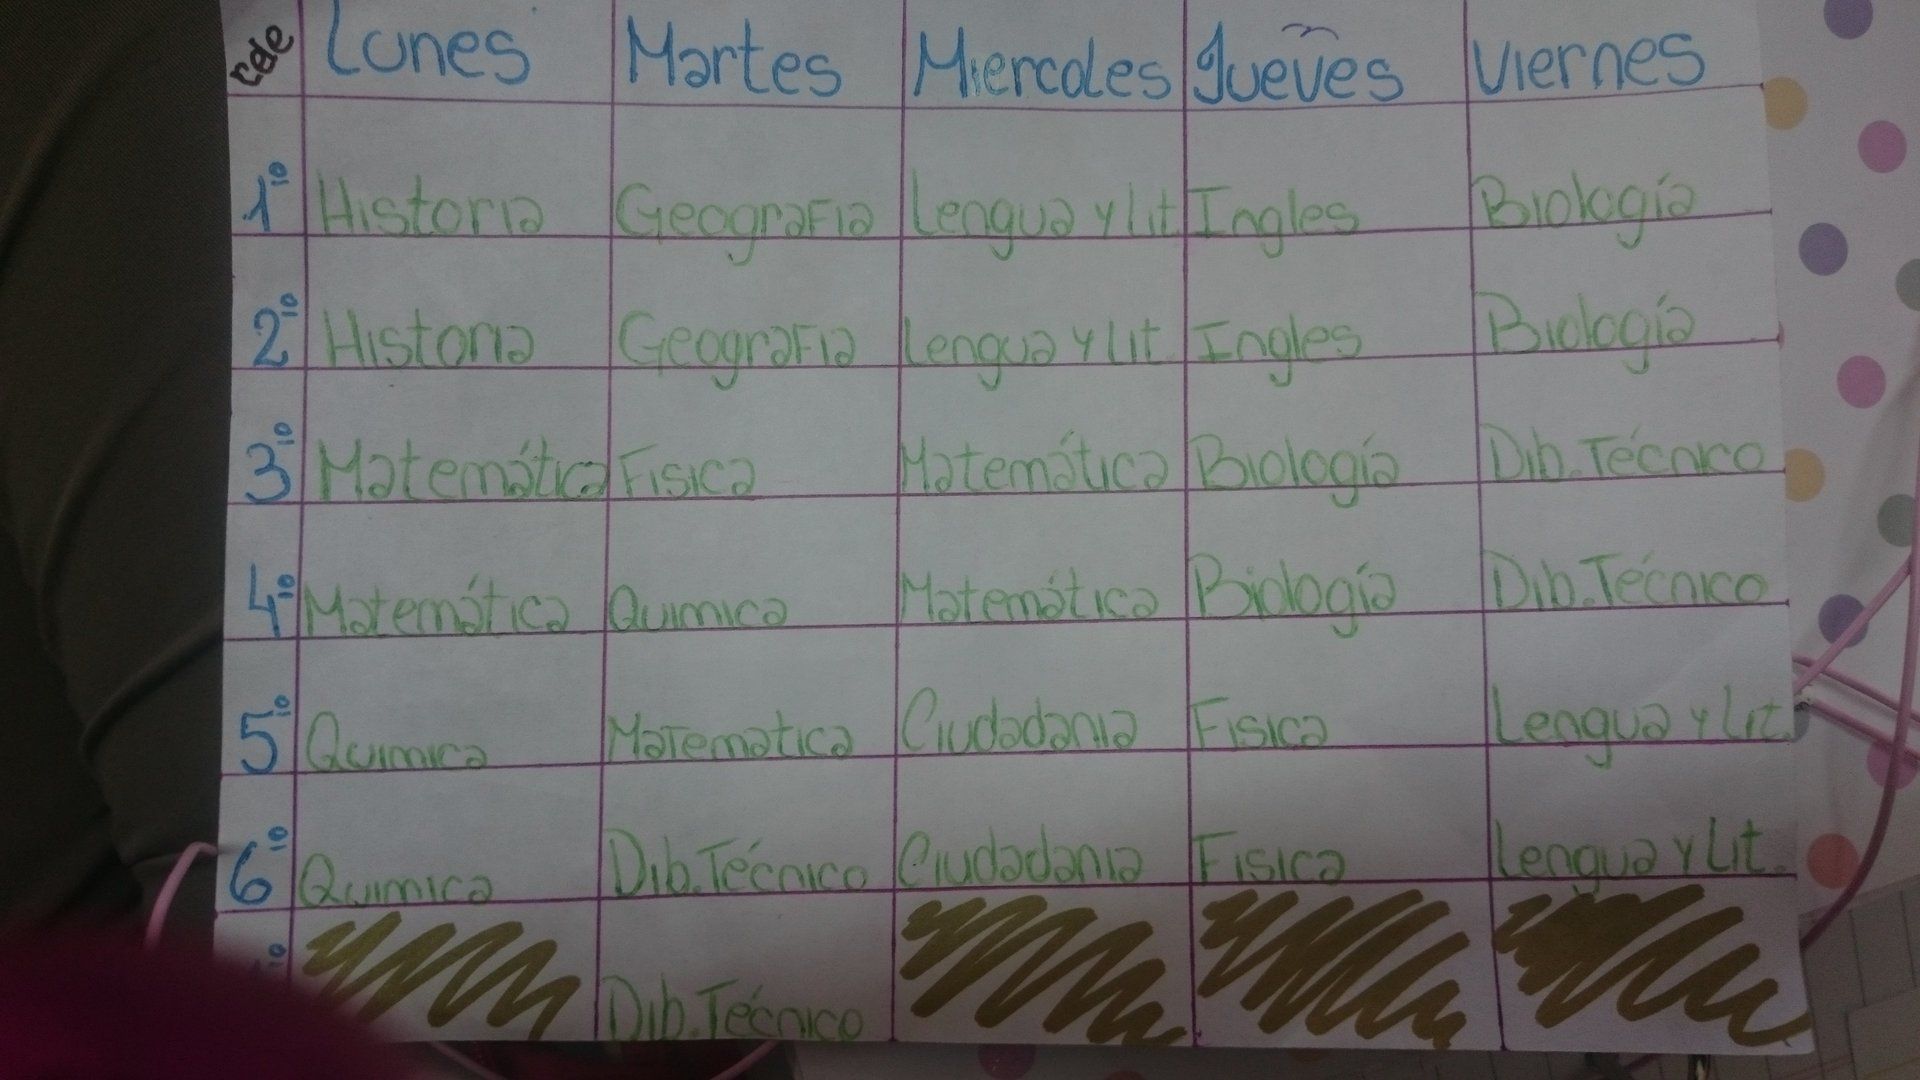 rede Lunes Martes Miercoles Jueves Viernes
1º Historia Geografia Lengua y lit Ingles Biología
2º Historia Geografia Lengua y lit Ingles Biología
3º Matemática Fisica Matemática Biología Dib. Técnico
4º Matemática Quimica Matemática Biología Dib. Técnico
5º Quimica Matematica Ciudadania Fisica Lengua y Lit.
6º Quimica Dib. Técnico Ciudadania Fisica Lengua y Lit.
Dib. Técnico